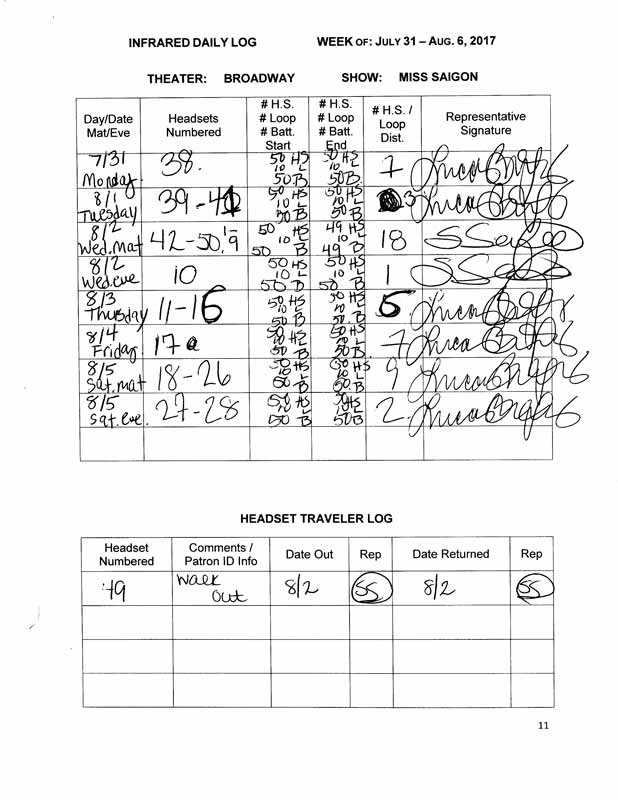 INFRARED DAILY LOG WEEK OF: JULY 31 – AUG. 6, 2017
THEATER: BROADWAY SHOW: MISS SAIGON
Day/Date Mat/Eve Headsets Numbered # H.S. # Loop # Batt. Start # H.S. # Loop # Batt. End # H.S. / Loop Dist. Representative Signature
7/31 Monday 38. 50 HS 10 L 50 B 50 HS 10 L 50 B 1
8/1 Tuesday 39-41 50 HS 10 L 50 B 50 HS 10 L 50 B 3
8/2 Wed. Mat 42-50, 1-9 50 HS 10 L 50 B 49 HS 10 L 49 B 18
8/2 Wed. eve 10 50 HS 10 L 50 B 50 HS 10 L 50 B 1
8/3 Thursday 11-16 50 HS 10 L 50 B 50 HS 10 L 50 B
8/4 Friday 17 50 HS 10 L 50 B 50 HS 10 L 50 B 7
8/5 Sat. mat 18-26 50 HS 10 L 50 B 50 HS 10 L 50 B 9
8/5 Sat. eve. 27-28 50 HS 10 L 50 B 50 HS 10 L 50 B 2
HEADSET TRAVELER LOG
Headset Numbered Comments / Patron ID Info Date Out Rep Date Returned Rep
49 Walk Out 8/2 SS 8/2 SS
11